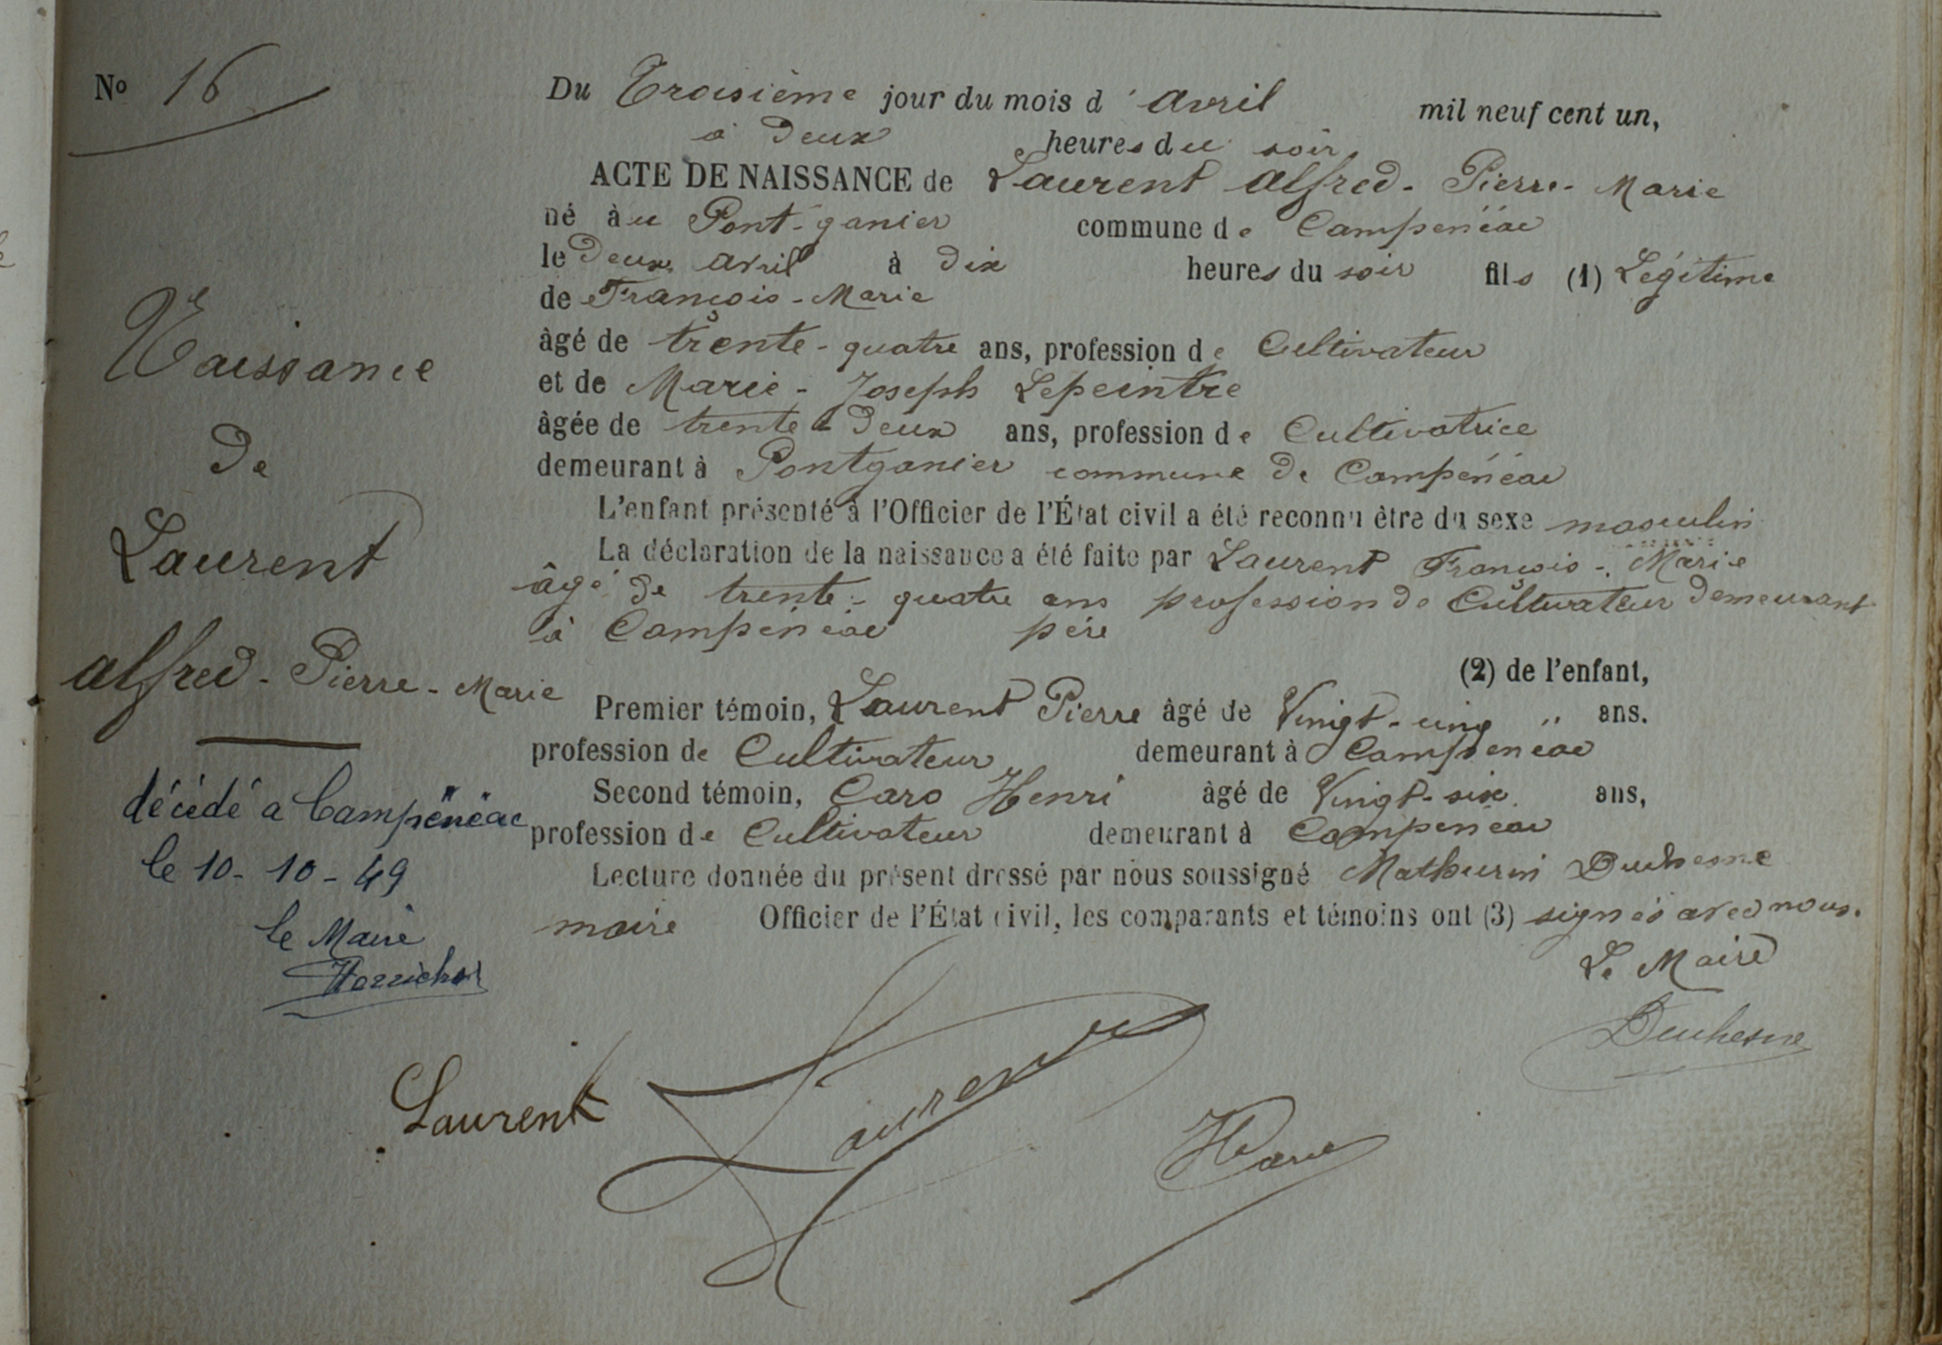 No 16
Naissance
de
Laurent
Alfred - Pierre - Marie
décédé a Campénéac
le 10 - 10 - 49
le Maire
Du Troisième jour du mois d'avril mil neuf cent un,
à deux heures du soir
ACTE DE NAISSANCE de Laurent Alfred - Pierre - Marie
né àu Pont-ganier commune de Campénéac
le deux avril à dix heures du soir fils (1) Légitime
de François - Marie
âgé de trente - quatre ans, profession de Cultivateur
et de Marie - Joseph Lepeintre
âgée de trente - deux ans, profession de Cultivatrice
demeurant à Pontganier commune de Campénéac
L'enfant présenté à l'Officier de l'État civil a été reconnu être du sexe masculin
La déclaration de la naissance a été faite par Laurent François - Marie
âgé de trente - quatre ans profession de Cultivateur demeurant
à Campénéac père
(2) de l'enfant,
Premier témoin, Laurent Pierre âgé de Vingt - cinq " ans.
profession de Cultivateur demeurant à Campénéac
Second témoin, Caro Henri âgé de Vingt - six ans,
profession de Cultivateur demeurant à Campénéac
Lecture donnée du présent dressé par nous soussigné Mathurin Duchesne
maire Officier de l'État civil, les comparants et témoins ont (3) signés avec nous.
Le Maire
Duchesne
Laurent Laurent